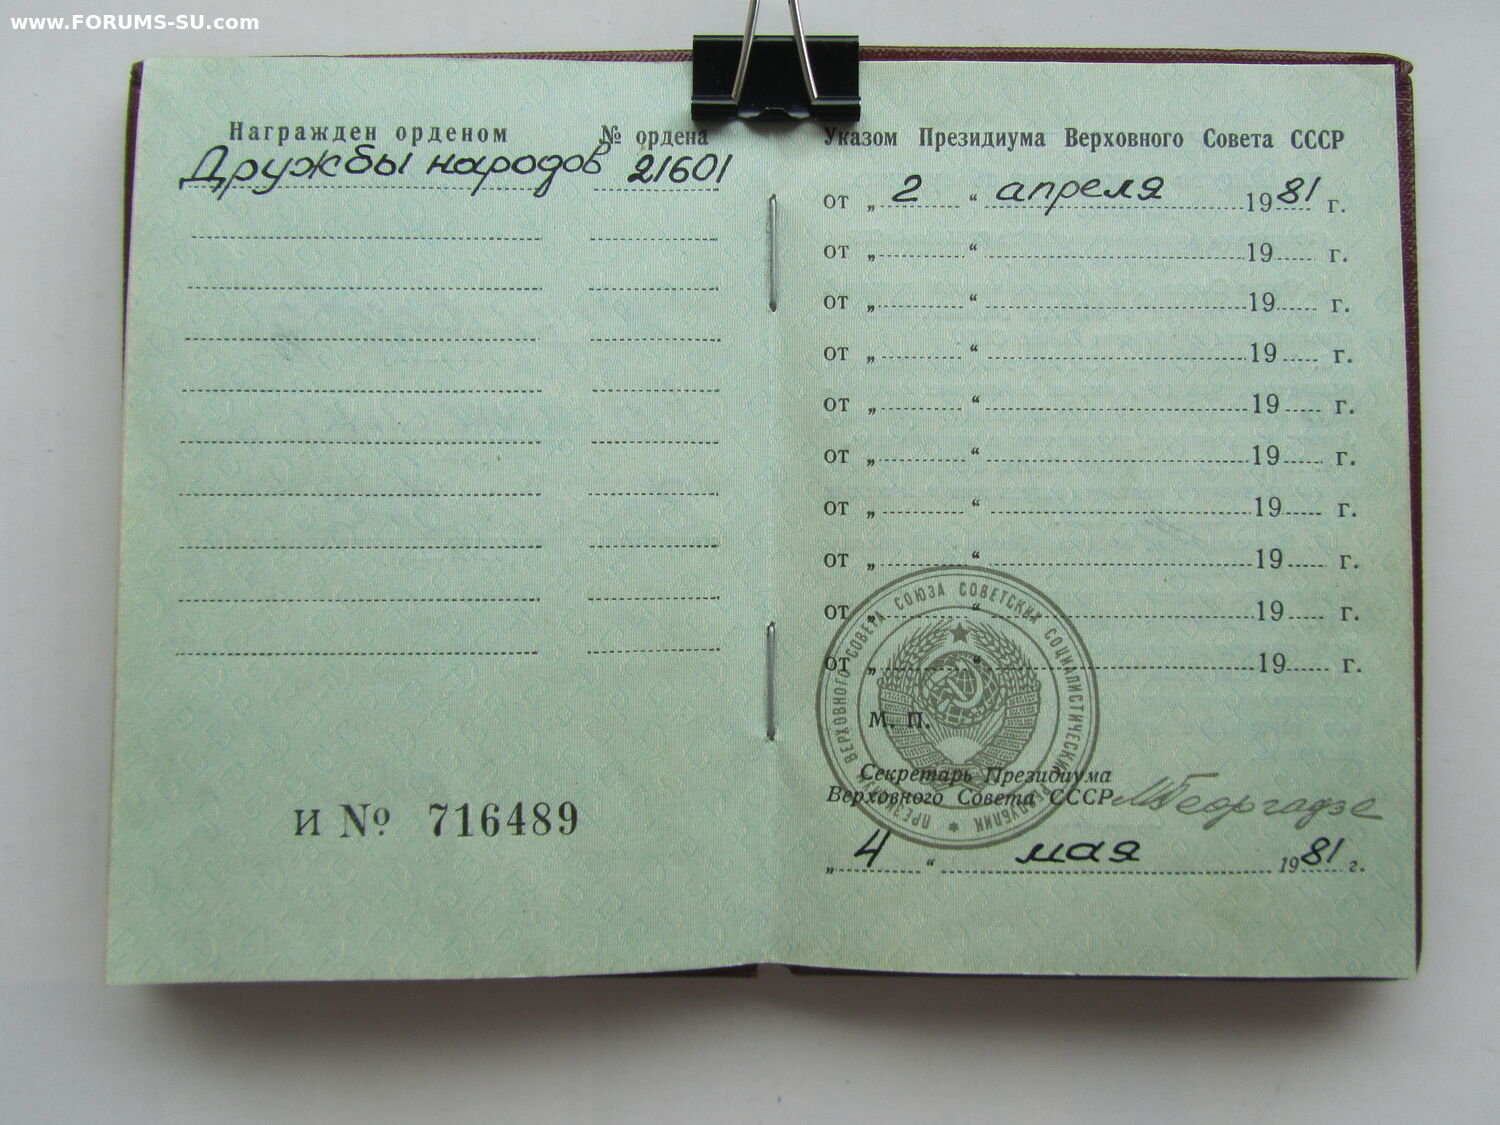 www.FORUMS-SU.com
Награжден орденом № ордена
Дружбы народов 21601
Указом Президиума Верховного Совета СССР
от „ 2 “ апреля 1981 г.
от „ “ 19 г.
от „ “ 19 г.
от „ “ 19 г.
от „ “ 19 г.
от „ “ 19 г.
от „ “ 19 г.
от „ “ 19 г.
от „ “ 19 г.
от „ “ 19 г.
ПРЕЗИДИУМ ВЕРХОВНОГО СОВЕТА СОЮЗА СОВЕТСКИХ СОЦИАЛИСТИЧЕСКИХ РЕСПУБЛИК
М. П.
Секретарь Президиума
Верховного Совета СССР МГеоргадзе
„ 4 “ мая 1981 г.
И № 716489